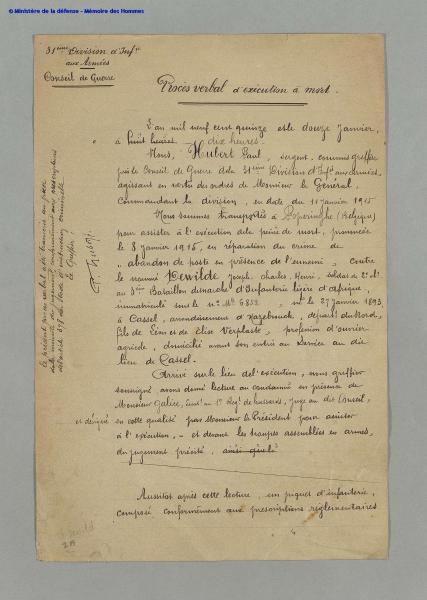 © Ministère de la défense - Mémoire des Hommes
31ème Division d'Infie
aux Armées
Conseil de Guerre
Procès verbal d'exécution à mort.
L'an mil neuf cent quinze et le douze janvier,
à huit heures dix heures.
Nous, Hubert Paul, sergent, commis greffier
près le Conseil de Guerre de la 31ème Division d'Infie aux armées,
agissant en vertu des ordres de Monsieur le Général,
Commandant la division, en date du 11 janvier 1915
Nous sommes transportés à Poperinghe (Belgique)
pour assister à l'exécution de la peine de mort, prononcée
le 8 janvier 1915, en réparation du crime de
"abandon de poste en présence de l'ennemi" contre
le nommé Dewilde Joseph, Charles, Henri, soldat de 2e cl.
au 3ème Bataillon de marche d'Infanterie légère d'Afrique,
immatriculé sous le no Mle, né le 27 janvier 1893
à Cassel, arrondissement d'Hazebrouck, départt du Nord,
fils de et de Elise Verplaste, profession d'ouvrier
agricole, domicilié avant son entrée au service au dit
lieu de Cassel.
Arrivé sur le lieu de l'exécution, nous greffier
soussigné avons donné lecture au condamné en présence de
Monsieur, lieutt au Régt de hussards, juge au dit Conseil,
et désigné en cette qualité par Monsieur le Président pour assister
à l'exécution, et devant les troupes assemblées en armes,
du jugement précité, ainsi que le
Aussitôt après cette lecture, un piquet d'infanterie,
composé conformément aux prescriptions réglementaires
Le présent procès verbal a été transcrit au pied
de la minute du jugement conformément aux prescriptions
de l'article du Code d'instruction criminelle
Le Greffier,
P. Hubert